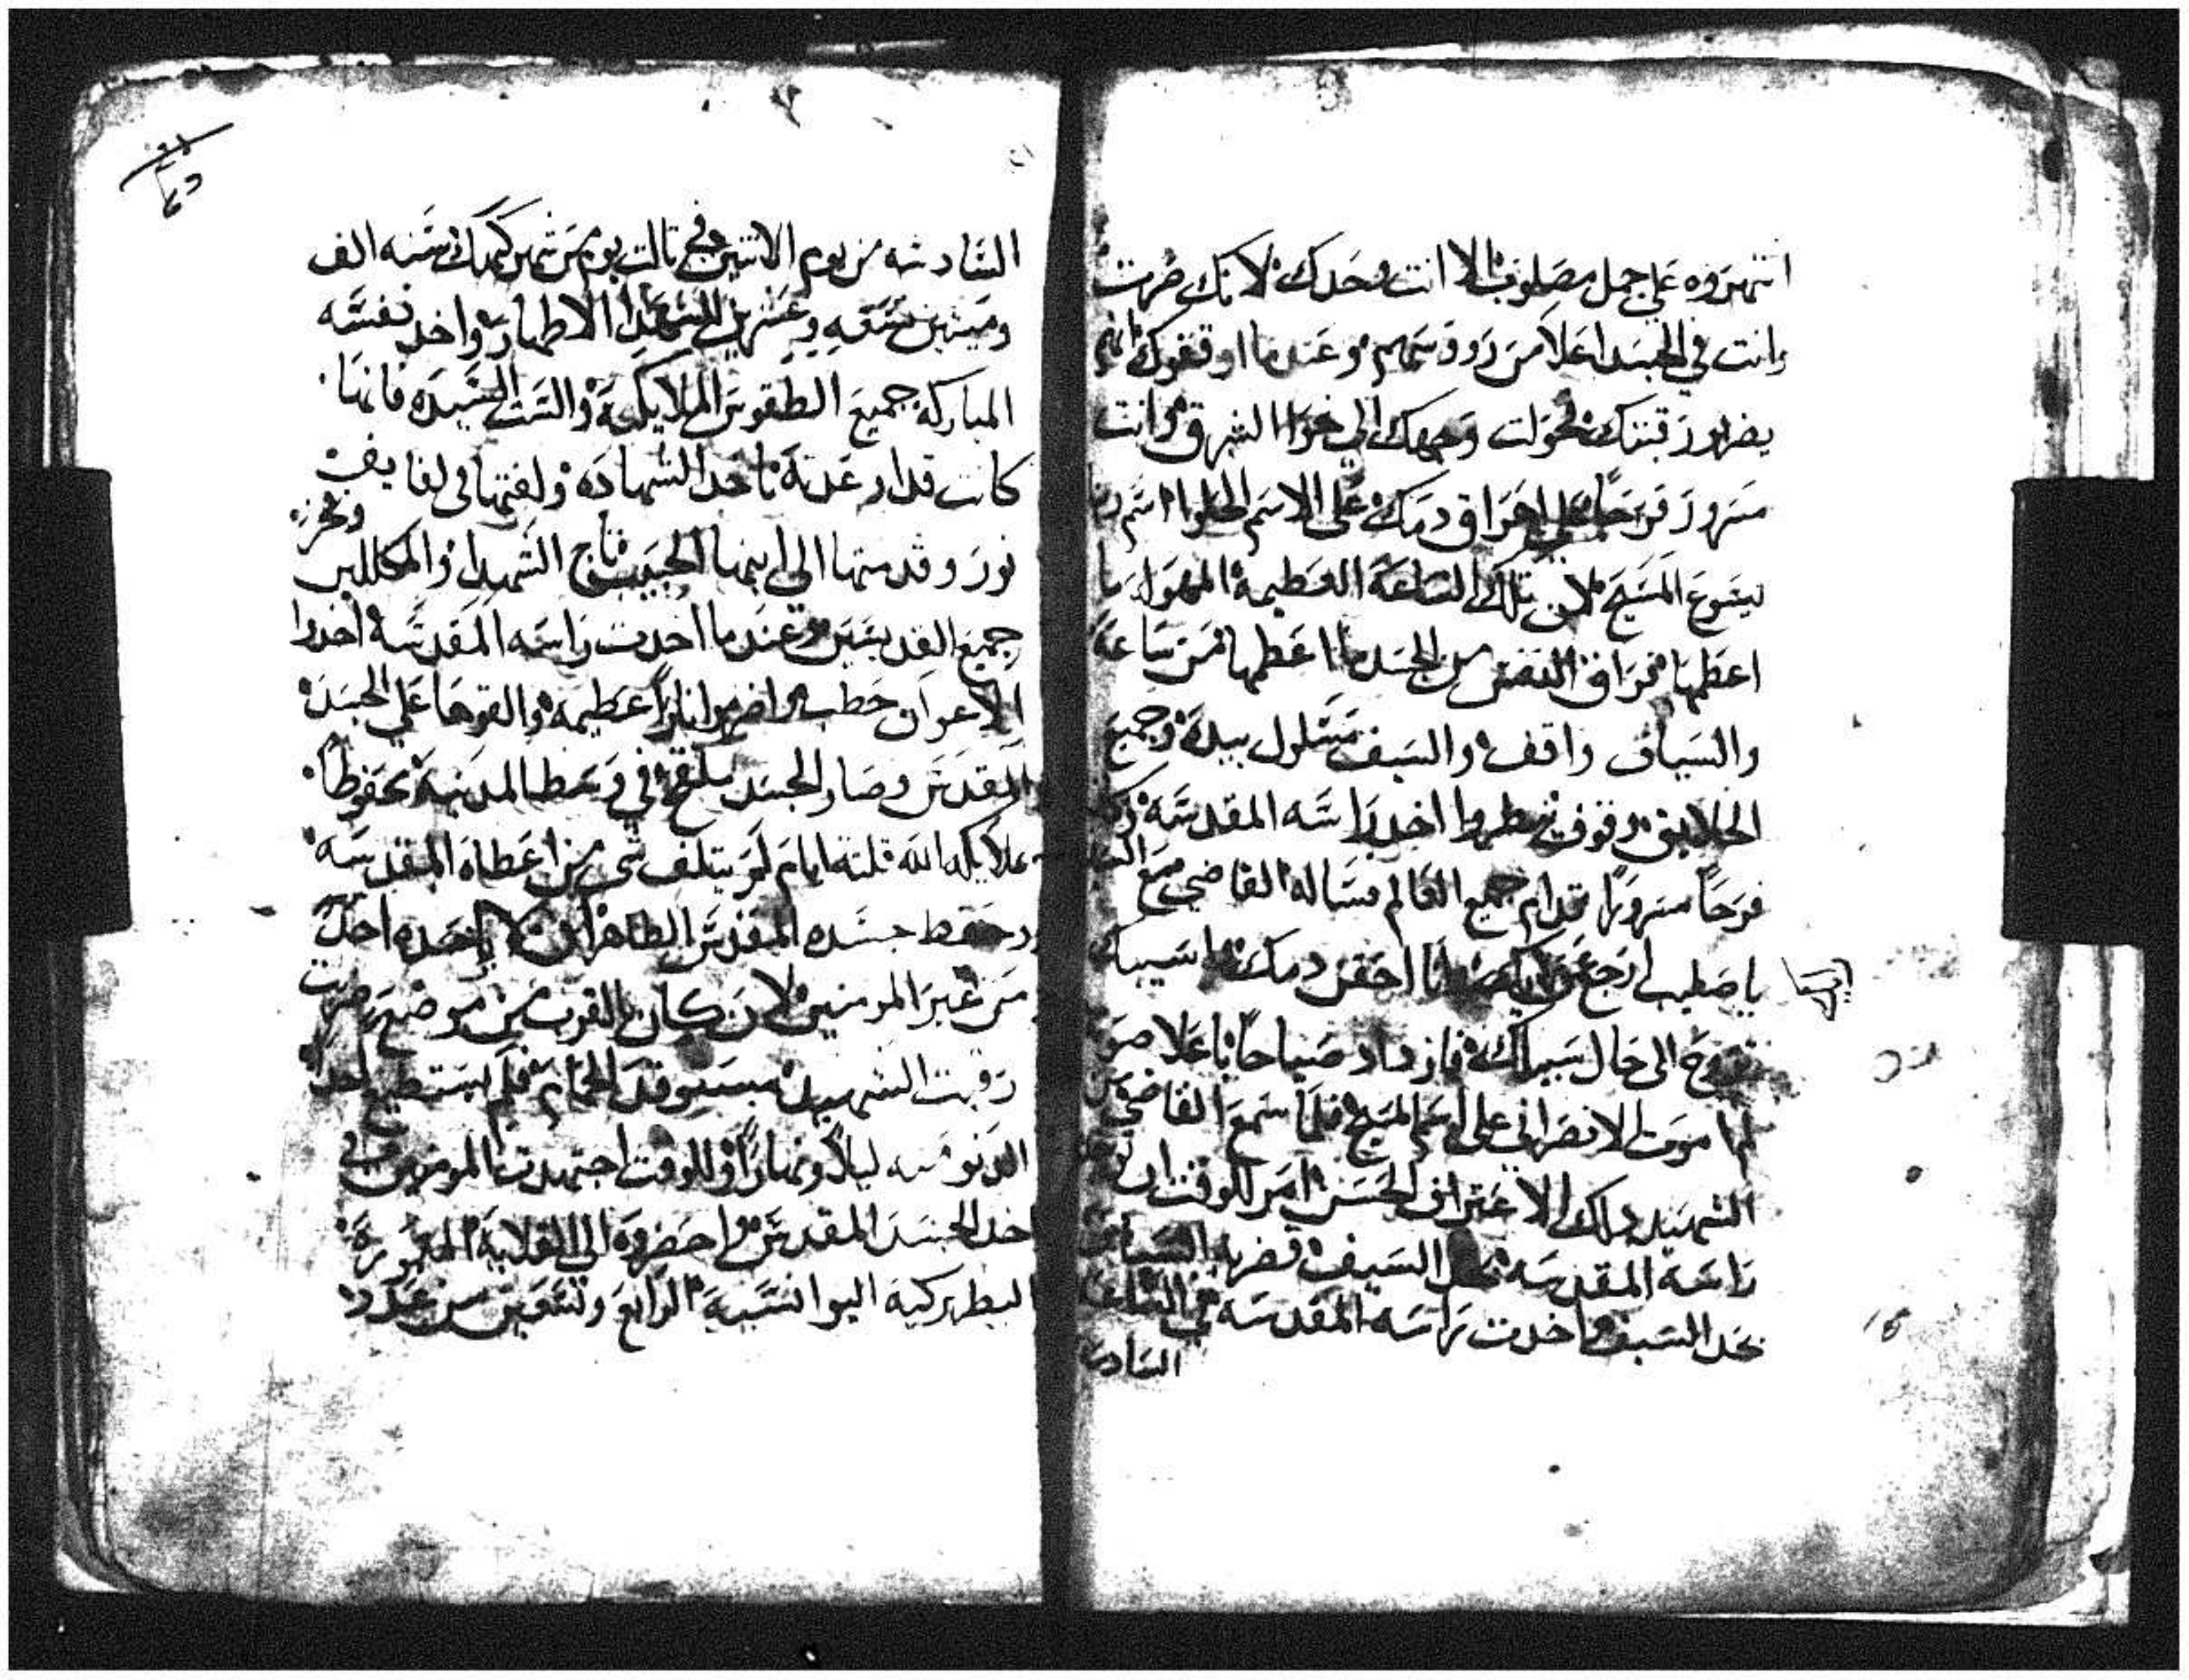 انتهروه على جمل مصلوب الا انت وحدك لانك صرت
وانت في الجسد اعلا من رووسهم وعندما اوقفوك
رقبتك تحولت وجهك الى نحو الشرق وانت
مسرور فرحاً على اهراق دمك على الاسم الحلوا اسم ربنا
يسوع المسيح لان تلك الساعة العظيمة المهولة ما
اعظمها فراق النفس من الجسد ما اعظمها من ساعة
والسياف واقف والسيف مسلول بيده وجميع
الخلايق وقوف ينظروا اخد راسه المقدسه
فرحاً مسروراً قدام جميع العالم فساله القاضي مع
يا صليب ارجع عن احقن دمك اسيبك
تروح الى حال سبيلك فازداد صياحاً باعلا صوته
لم اموت الا نصراني على اسم المسيح فلما سمع القاضي من
الشهيد دلك الاعتراف الحسن امر للوقت ان توخد
راسه المقدسه بحد السيف فضربه السياف
بحد السيف واخدت راسه المقدسه في الساعة
السادسه
السادسه من يوم الاتنين في تالت يوم من شهر كيهك سنه الف
وميتين تسعه وعشرين للشهدا الاطهار واخد نفسه
المباركة جميع الطقوس الملايكية والست السيده فانها
كانت قد اوعدته باخد الشهاده ولفتها في لفايف
نور وقدمتها الى ابنها الحبيب تاج الشهدا والمكللين وفخر
جميع القديسين وعندما اخدت راسه المقدسة اخدوا
الاعوان حطب واضرموا ناراً عظيمة والقوها على الجسد
المقدس وصار الجسد ملقح في وسط المدينة محفوظاً
بملايكة الله تلتة ايام لم يتلف شي من اعضاه المقدسه
وحفظ جسده المقدس الطاهر لان لا ياخده احد
من غير المومنين لان كان بالقرب من موضع ضربت
رقبت الشهيد مستوقد الحمام فلم يستطيع احداً
الدنو منه ليلاً ونهاراً وللوقت اجتهدت المومنين في
اخد الجسد المقدس واحضروه الى القلاية المعمورة
البطريركية اليوانسية الرابع وتسعين من عدد